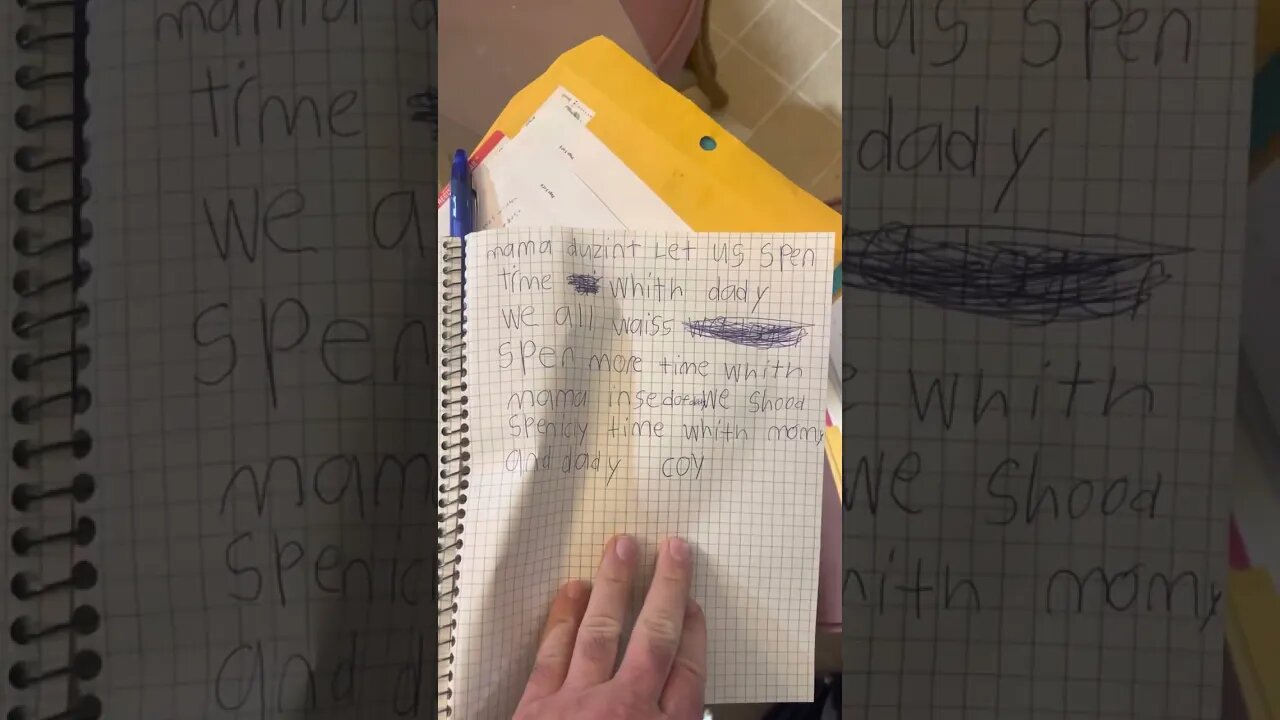 mama duzint Let us spen
time whith dady
we all waiss
spen more time whith
mama insedof we shood
spenicly time whith momy
and dady coy